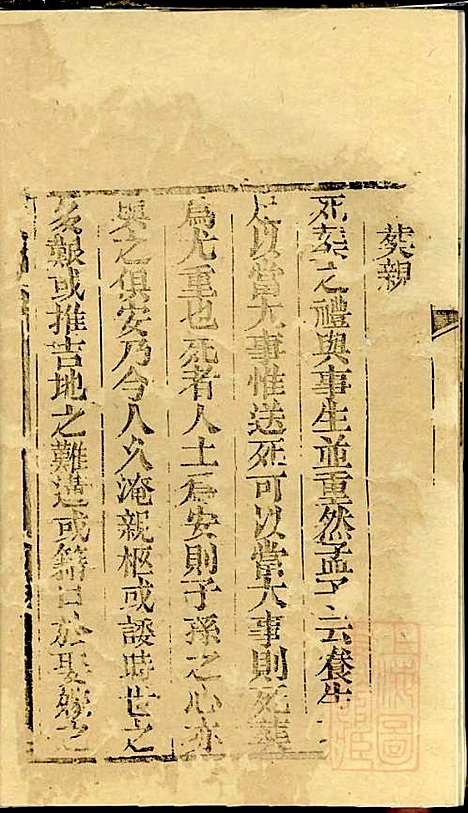 葬親
死葬之禮與事生並重然孟子云養生
足以當大事惟送死可以當大事則死葬
爲尤重也死者入土爲安則子孫之心亦
與之俱安乃今人久淹親柩或諉時世之
多艱或推吉地之難遘或籍口於娶嫁之
上海圖